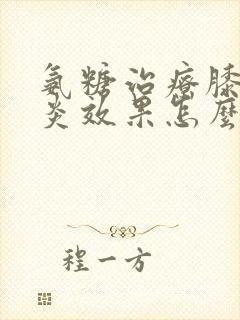 氨糖治疗膝
炎效果怎麼
程一方